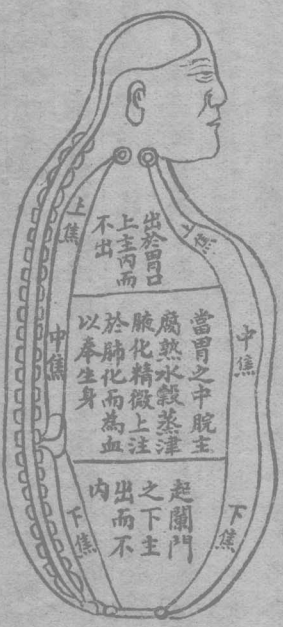 上焦
上焦
出於胃口
上主內而
不出
中焦
中焦
當胃之中脘主
腐熟水穀蒸津
液化精微上注
於肺化而為血
以奉生身
下焦
下焦
起闌門
之下主
出而不
內